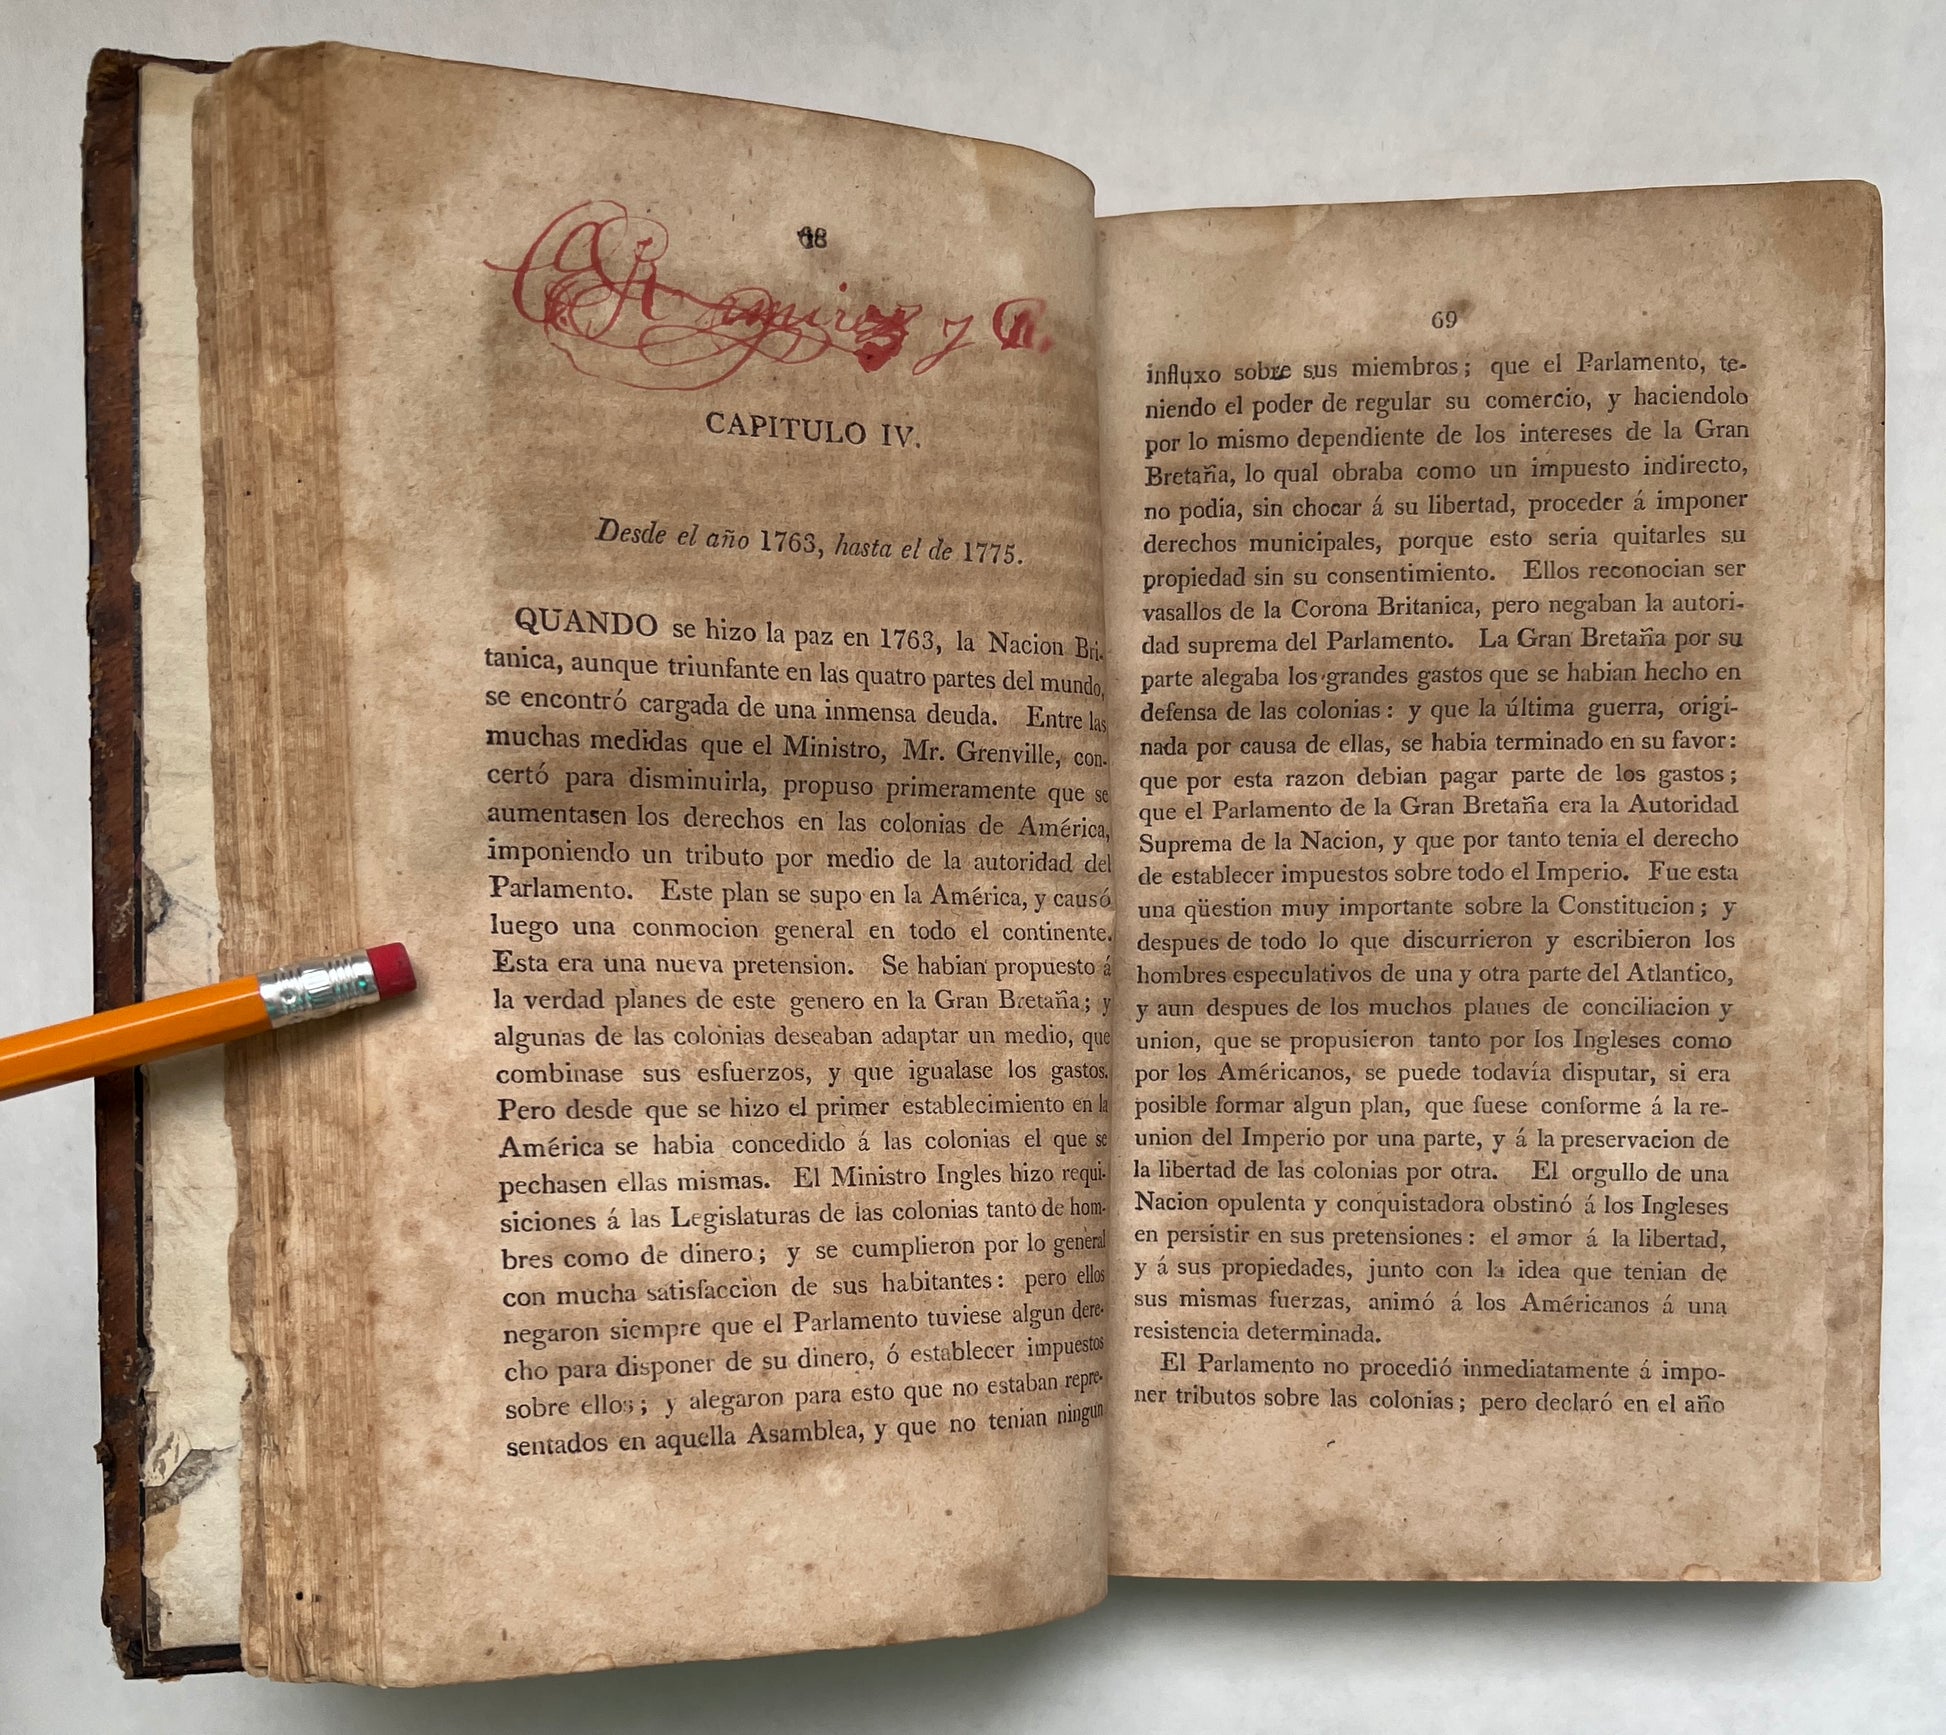 68
Ramirez y G.
CAPITULO IV.
Desde el año 1763, hasta el de 1775.
QUANDO se hizo la paz en 1763, la Nacion Bri-
tanica, aunque triunfante en las quatro partes del mundo,
se encontró cargada de una inmensa deuda. Entre las
muchas medidas que el Ministro, Mr. Grenville, con-
certó para disminuirla, propuso primeramente que se
aumentasen los derechos en las colonias de América,
imponiendo un tributo por medio de la autoridad del
Parlamento. Este plan se supo en la América, y causó
luego una conmocion general en todo el continente.
Esta era una nueva pretension. Se habian propuesto á
la verdad planes de este genero en la Gran Bretaña; y
algunas de las colonias deseaban adaptar un medio, que
combinase sus esfuerzos, y que igualase los gastos.
Pero desde que se hizo el primer establecimiento en la
América se habia concedido á las colonias el que se
pechasen ellas mismas. El Ministro Ingles hizo requi-
siciones á las Legislaturas de las colonias tanto de hom-
bres como de dinero; y se cumplieron por lo general
con mucha satisfaccion de sus habitantes: pero ellos
negaron siempre que el Parlamento tuviese algun dere-
cho para disponer de su dinero, ó establecer impuestos
sobre ellos; y alegaron para esto que no estaban repre-
sentados en aquella Asamblea, y que no tenian ningun
69
influxo sobre sus miembros; que el Parlamento, te-
niendo el poder de regular su comercio, y haciendolo
por lo mismo dependiente de los intereses de la Gran
Bretaña, lo qual obraba como un impuesto indirecto,
no podia, sin chocar á su libertad, proceder á imponer
derechos municipales, porque esto seria quitarles su
propiedad sin su consentimiento. Ellos reconocian ser
vasallos de la Corona Britanica, pero negaban la autori-
dad suprema del Parlamento. La Gran Bretaña por su
parte alegaba los grandes gastos que se habian hecho en
defensa de las colonias: y que la última guerra, origi-
nada por causa de ellas, se habia terminado en su favor:
que por esta razon debian pagar parte de los gastos;
que el Parlamento de la Gran Bretaña era la Autoridad
Suprema de la Nacion, y que por tanto tenia el derecho
de establecer impuestos sobre todo el Imperio. Fue esta
una qüestion muy importante sobre la Constitucion; y
despues de todo lo que discurrieron y escribieron los
hombres especulativos de una y otra parte del Atlantico,
y aun despues de los muchos planes de conciliacion y
union, que se propusieron tanto por los Ingleses como
por los Américanos, se puede todavía disputar, si era
posible formar algun plan, que fuese conforme á la re-
union del Imperio por una parte, y á la preservacion de
la libertad de las colonias por otra. El orgullo de una
Nacion opulenta y conquistadora obstinó á los Ingleses
en persistir en sus pretensiones: el amor á la libertad,
y á sus propiedades, junto con la idea que tenian de
sus mismas fuerzas, animó á los Américanos á una
resistencia determinada.
El Parlamento no procedió inmediatamente á impo-
ner tributos sobre las colonias; pero declaró en el año